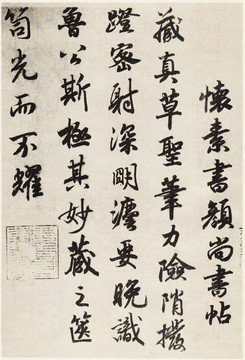 懷素書顏尚書帖
藏真草聖筆力險陗撥
蹬密射深明要晚識
魯公斯極其妙藏之篋
笥光而不耀